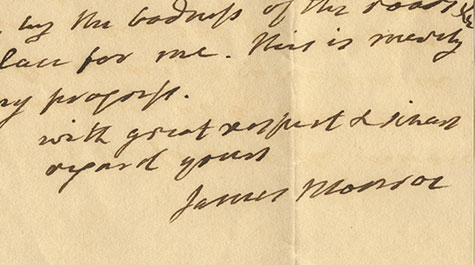 by the badness of the roads &
place for me. this is merely
my progress.
with great respect & sincere
regard yours
James Monroe